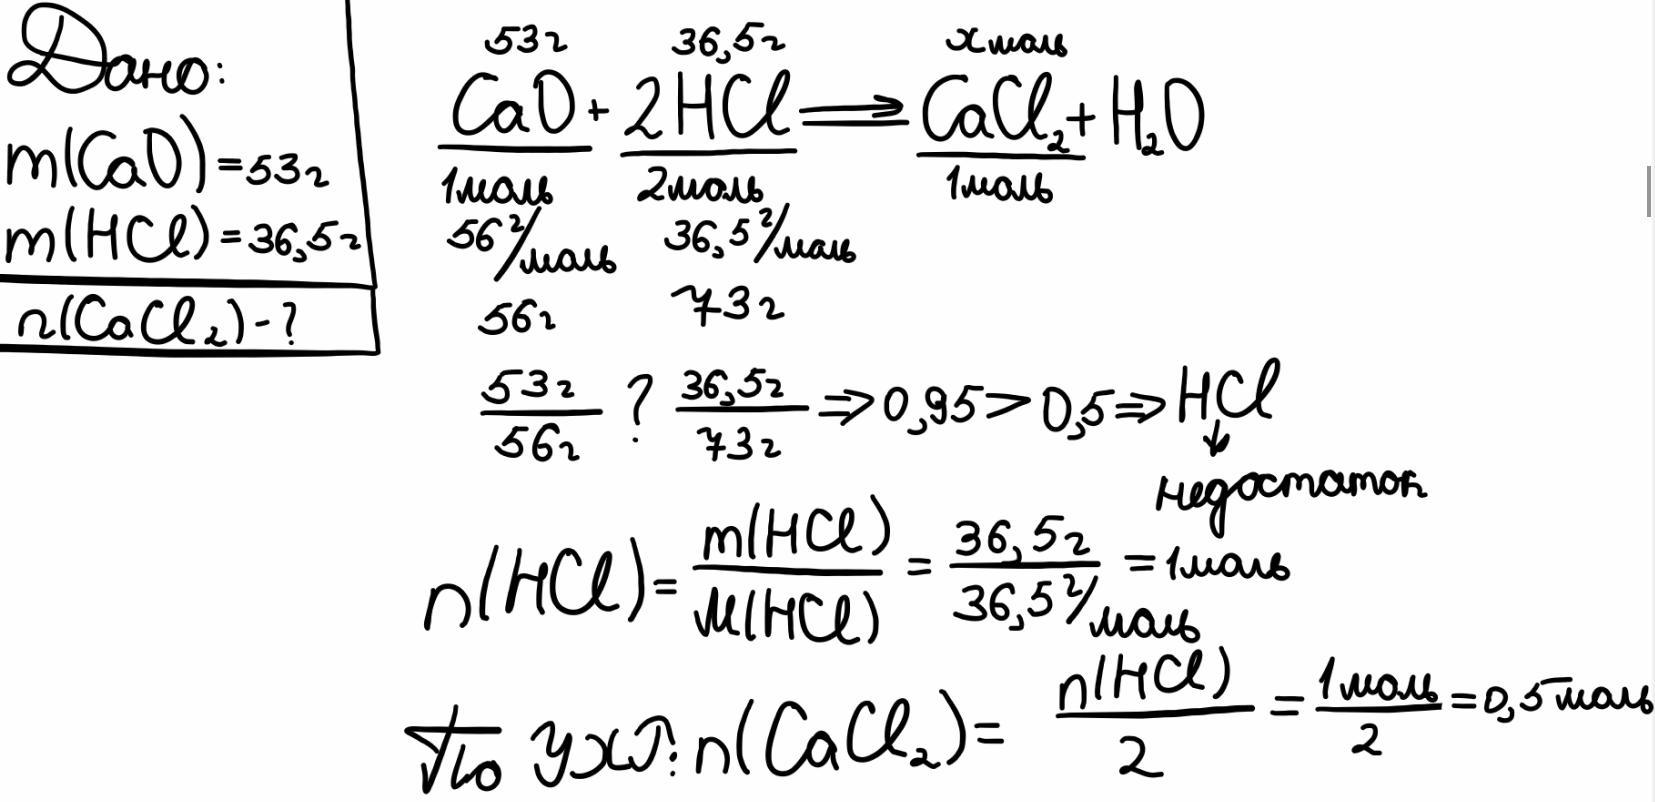 Дано:
m(CaO)=53г
m(HCl)=36,5г
n(CaCl₂)-?
53г 36,5г x моль
CaO+2HCl⟹CaCl₂+H₂O
1моль 2моль 1моль
56г/моль 36,5г/моль
56г 73г
53г/56г ? 36,5г/73г ⇒0,95>0,5⇒HCl
↓
недостаток
n(HCl)=m(HCl)/M(HCl)=36,5г/36,5г/моль=1моль
По УХР: n(CaCl₂)=n(HCl)/2=1моль/2=0,5моль